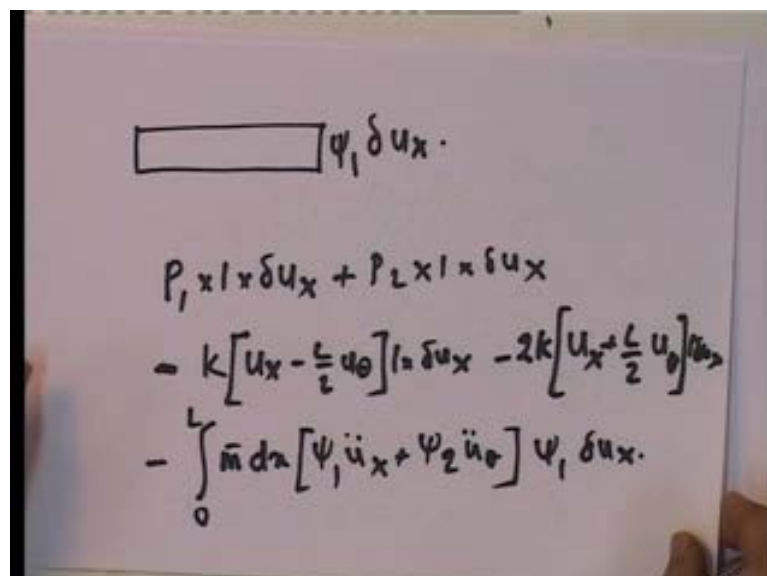 ψ₁ δu_x .
P₁ x 1 x δu_x + P₂ x 1 x δu_x
- k[u_x - L/2 u_θ] 1 x δu_x - 2k[u_x + L/2 u_θ] 1 δu_x
- ∫₀ᴸ m̄ dx [ψ₁ ü_x + ψ₂ ü_θ] ψ₁ δu_x .